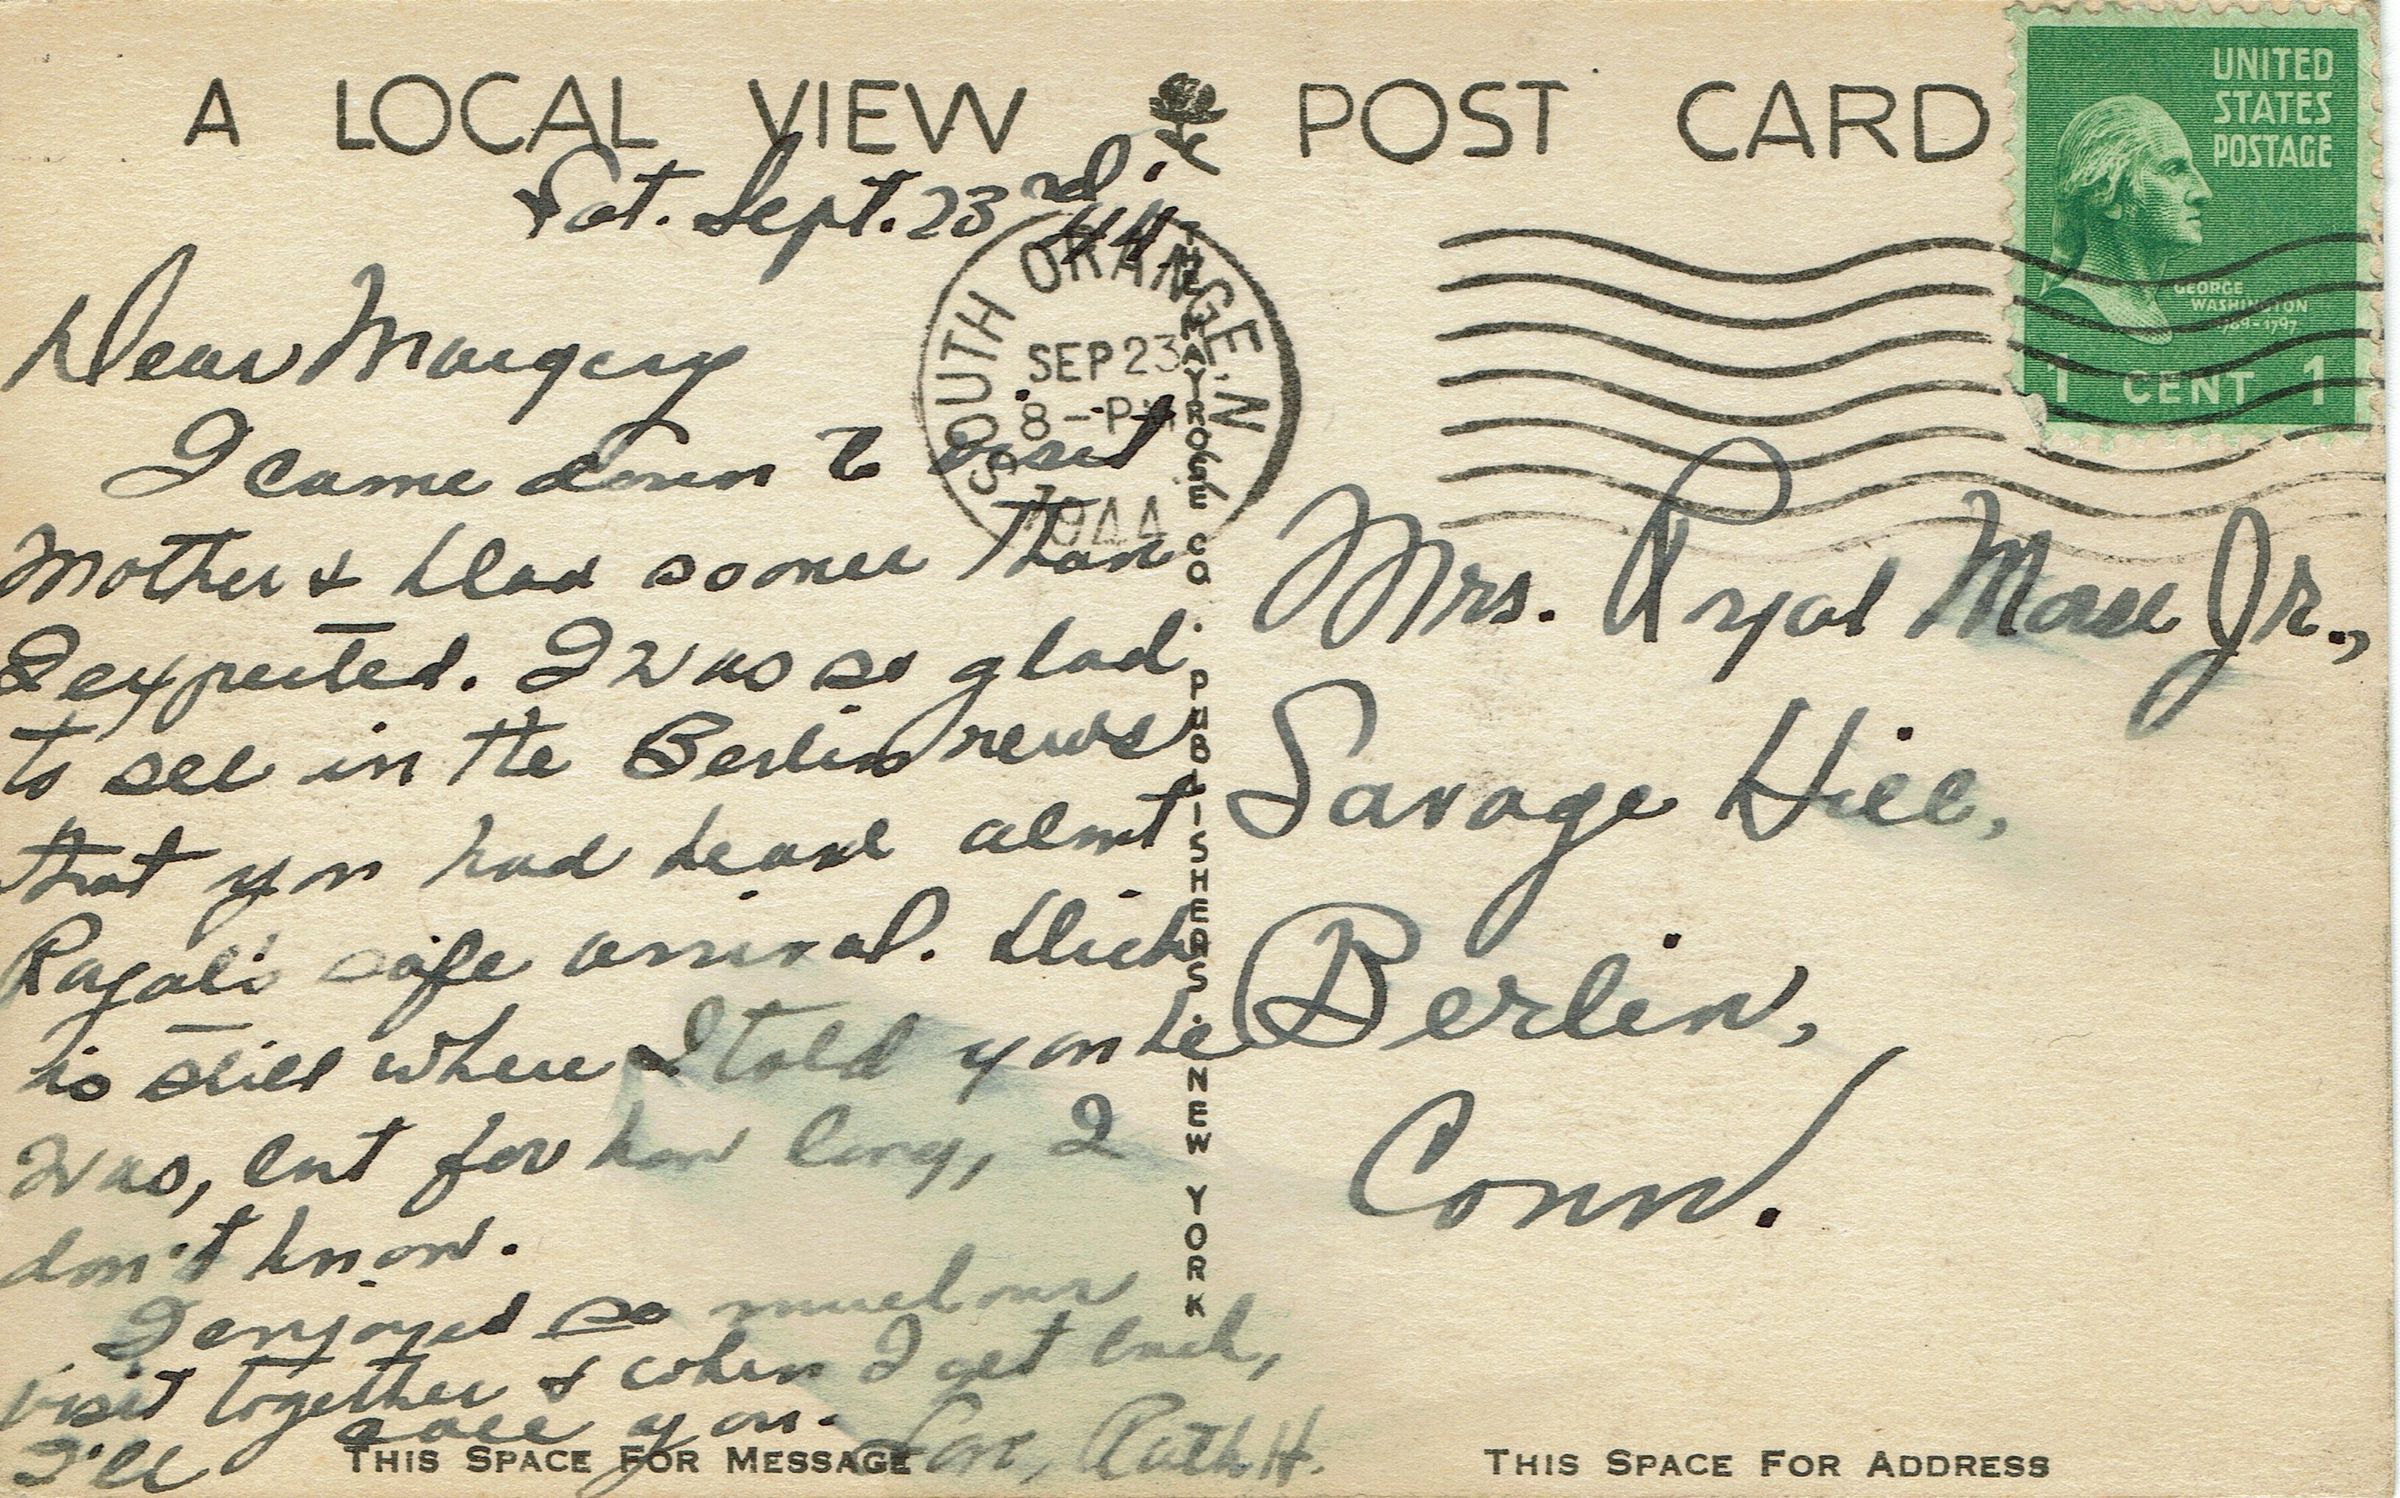 A LOCAL VIEW POST CARD
UNITED
STATES
POSTAGE
GEORGE
WASHINGTON
1789-1797
1 CENT 1
SOUTH ORANGE, N
SEP 23
8-PM
1944
THE MAYROSE CO. PUBLISHERS. NEW YORK
Sat. Sept. 23rd.
44
Dear Margery
I came down to visit
Mother & Dad sooner than
I expected. I was so glad
to see in the Berlin news
that you had heard about
Royal's safe arrival. Dick
is still where I told you he
was, but for how long, I
don't know.
I enjoyed so much our
visit together & when I get back,
I'll call you.
Love, Ruth H.
THIS SPACE FOR MESSAGE
Mrs. Royal Morse Jr.,
Savage Hill,
Berlin,
Conn.
THIS SPACE FOR ADDRESS